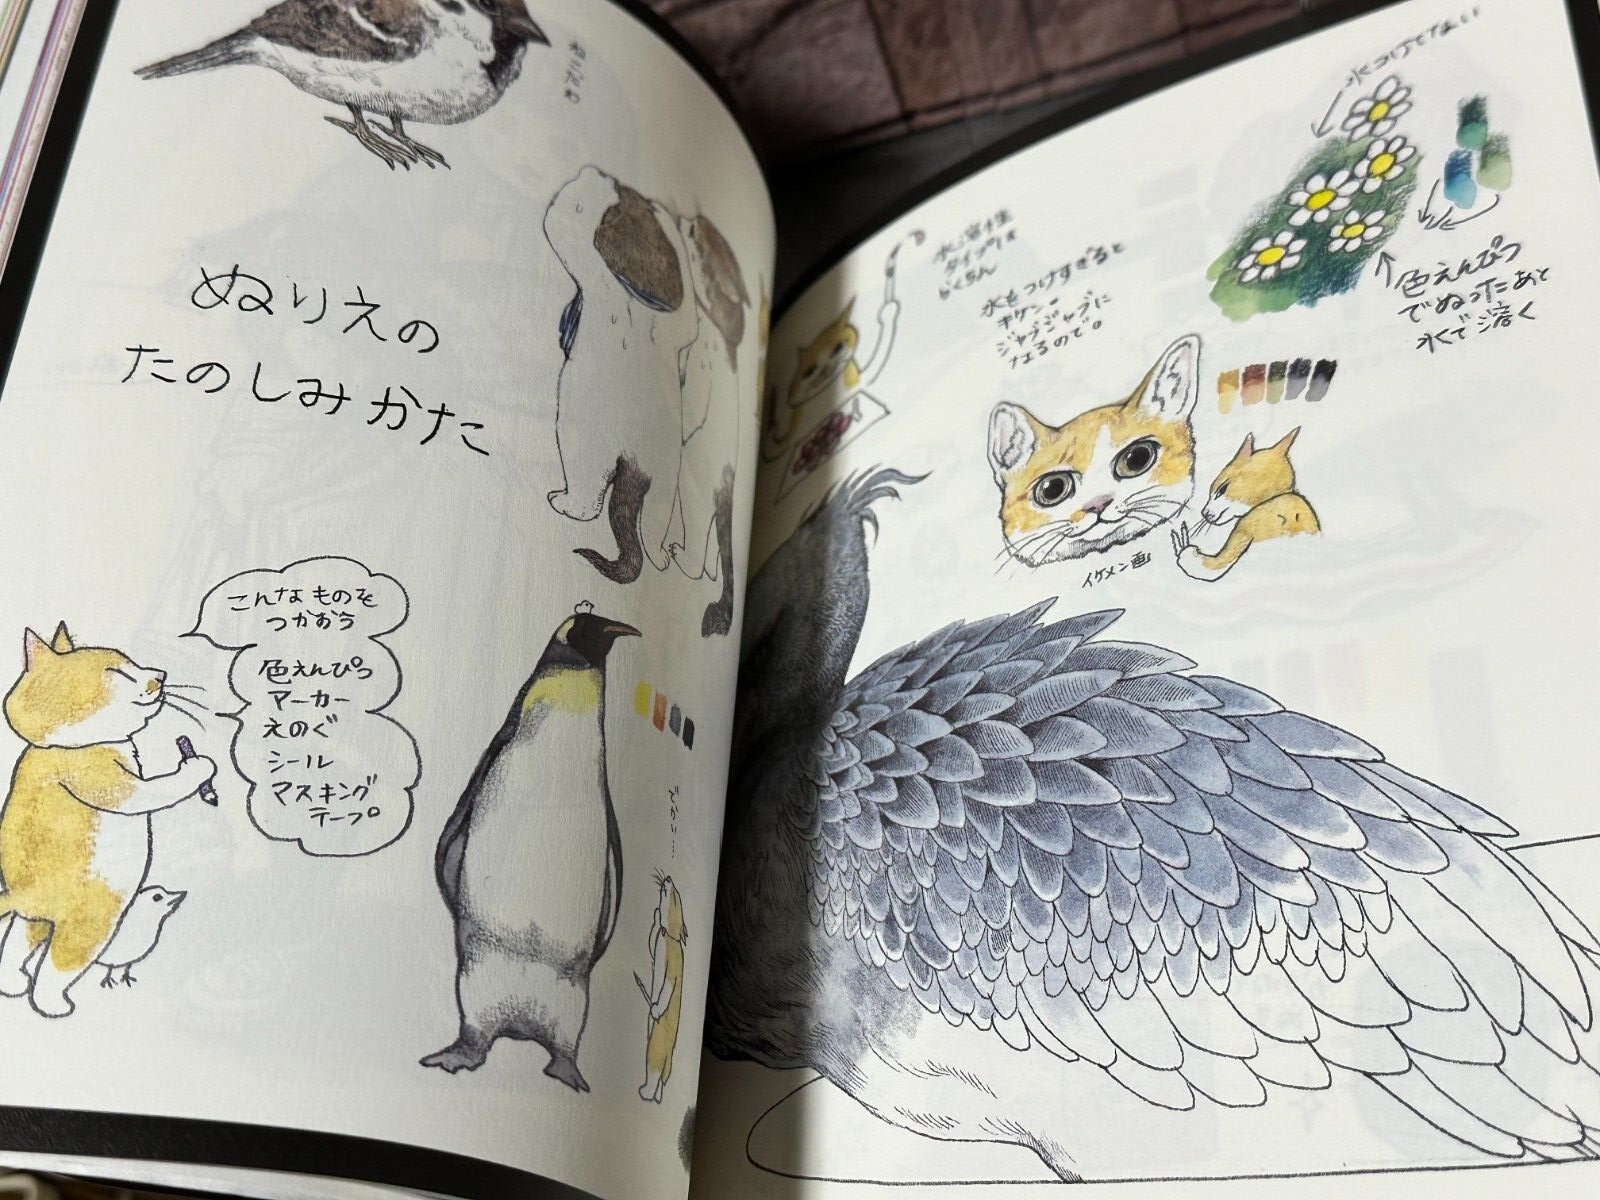 ぬりえの
たのしみかた
こんな ものを
つかおう
色えんぴつ
マーカー
えのぐ
シール
マスキング
テープ
水溶性
タイプは
らくちん
水をつけすぎると
ジャブジャブに
なるので。
水つけてない
色えんぴつ
でぬったあと
水で溶く
イケメン画